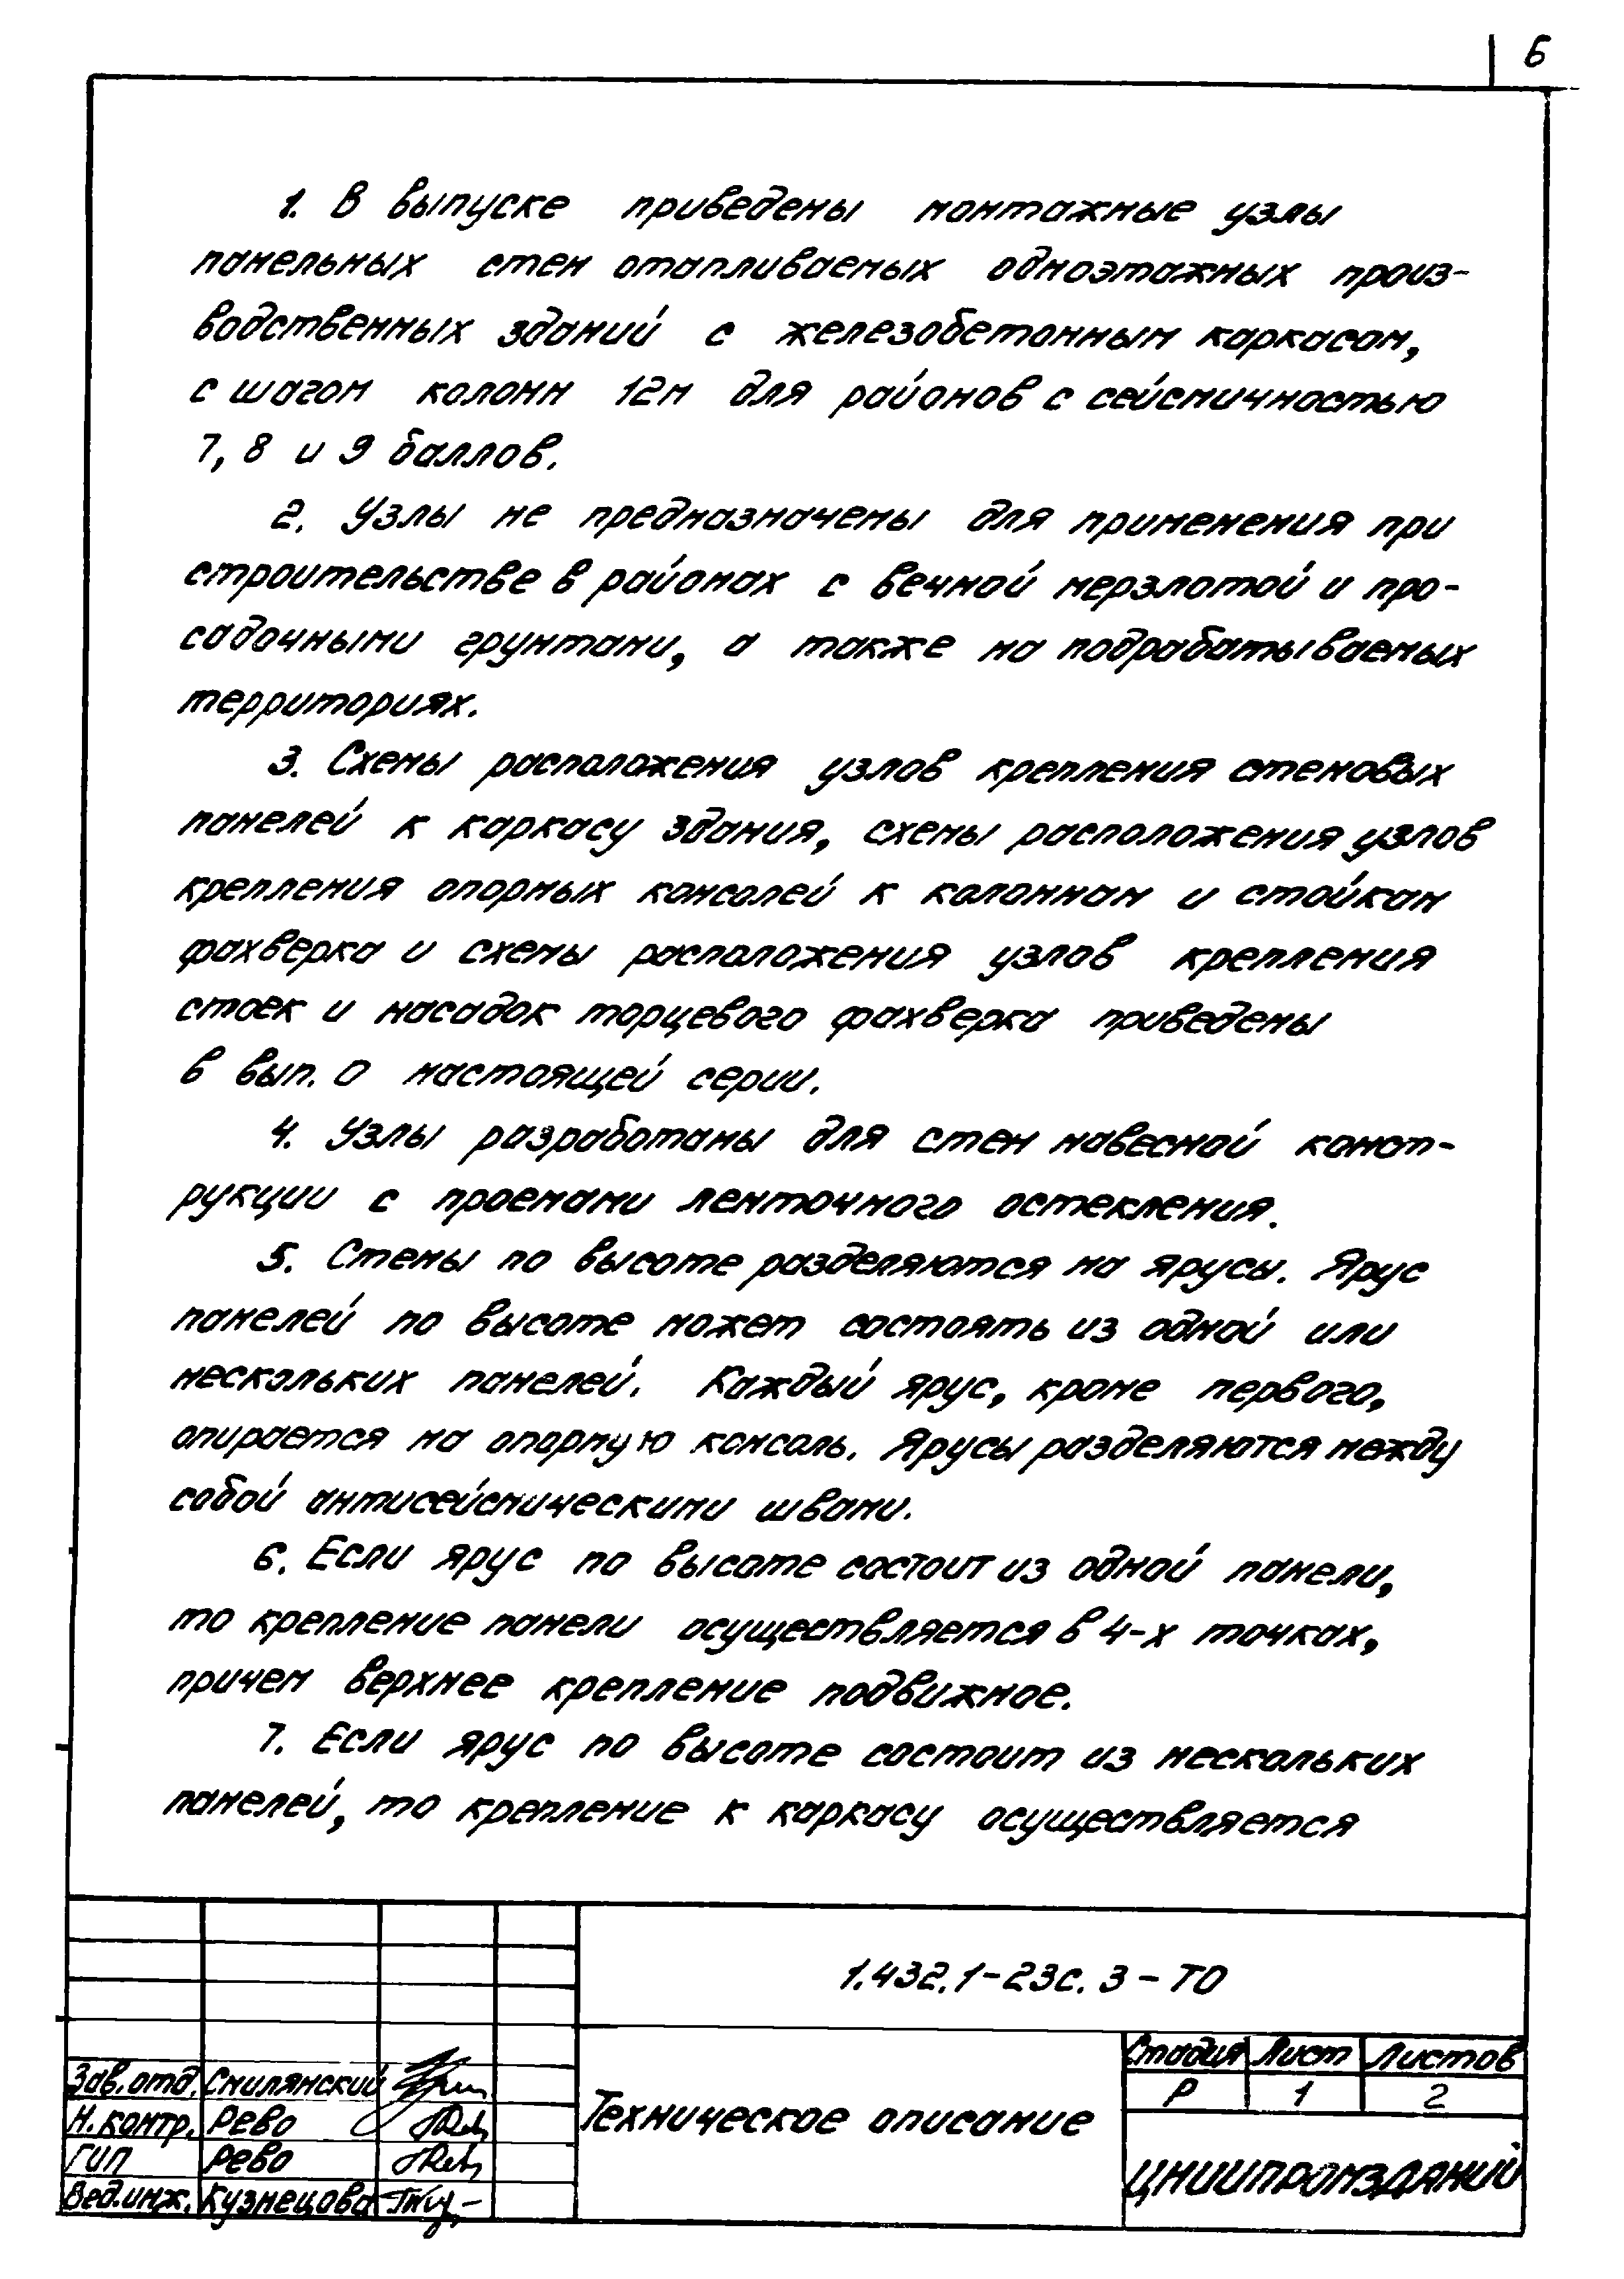 6
1. В выпуске приведены монтажные узлы
панельных стен отапливаемых одноэтажных произ-
водственных зданий с железобетонным каркасом,
с шагом колонн 12м для районов с сейсмичностью
7, 8 и 9 баллов.
2. Узлы не предназначены для применения при
строительстве в районах с вечной мерзлотой и про-
садочными грунтами, а также на подрабатываемых
территориях.
3. Схемы расположения узлов крепления стеновых
панелей к каркасу здания, схемы расположения узлов
крепления опорных консолей к колоннам и стойкам
фахверка и схемы расположения узлов крепления
стоек и насадок торцевого фахверка приведены
в вып. 0 настоящей серии.
4. Узлы разработаны для стен навесной конст-
рукции с проемами ленточного остекления.
5. Стены по высоте разделяются на ярусы. Ярус
панелей по высоте может состоять из одной или
нескольких панелей. Каждый ярус, кроме первого,
опирается на опорную консоль. Ярусы разделяются между
собой антисейсмическими швами.
6. Если ярус по высоте состоит из одной панели,
то крепление панели осуществляется в 4-х точках,
причем верхнее крепление подвижное.
7. Если ярус по высоте состоит из нескольких
панелей, то крепление к каркасу осуществляется
1.432.1-23с.3-ТО
Зав.отд. Смилянский
Н.контр. Рево
ГИП Рево
Вед.инж. Кузнецова
Техническое описание
Стадия Лист Листов
Р 1 2
ЦНИИПРОМЗДАНИЙ